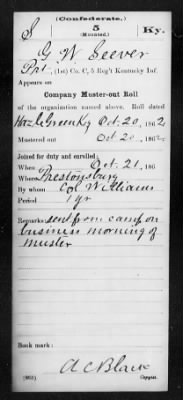 (Confederate.)
S 5 Ky.
(Mounted.)
G W Seever
Pvt., (1st) Co. C, 5 Reg't Kentucky Inf.
Appears on
Company Muster-out Roll
of the organization named above. Roll dated
Hazel Green Ky Oct. 20, 1862
Mustered out Oct 20, 1862
Joined for duty and enrolled:
When Oct. 21, 186
Where Prestonsburg
By whom Col Williams
Period 1 yr
Remarks: sent from camp on
business morning of
muster
Book mark:
A C Black
Copyist.